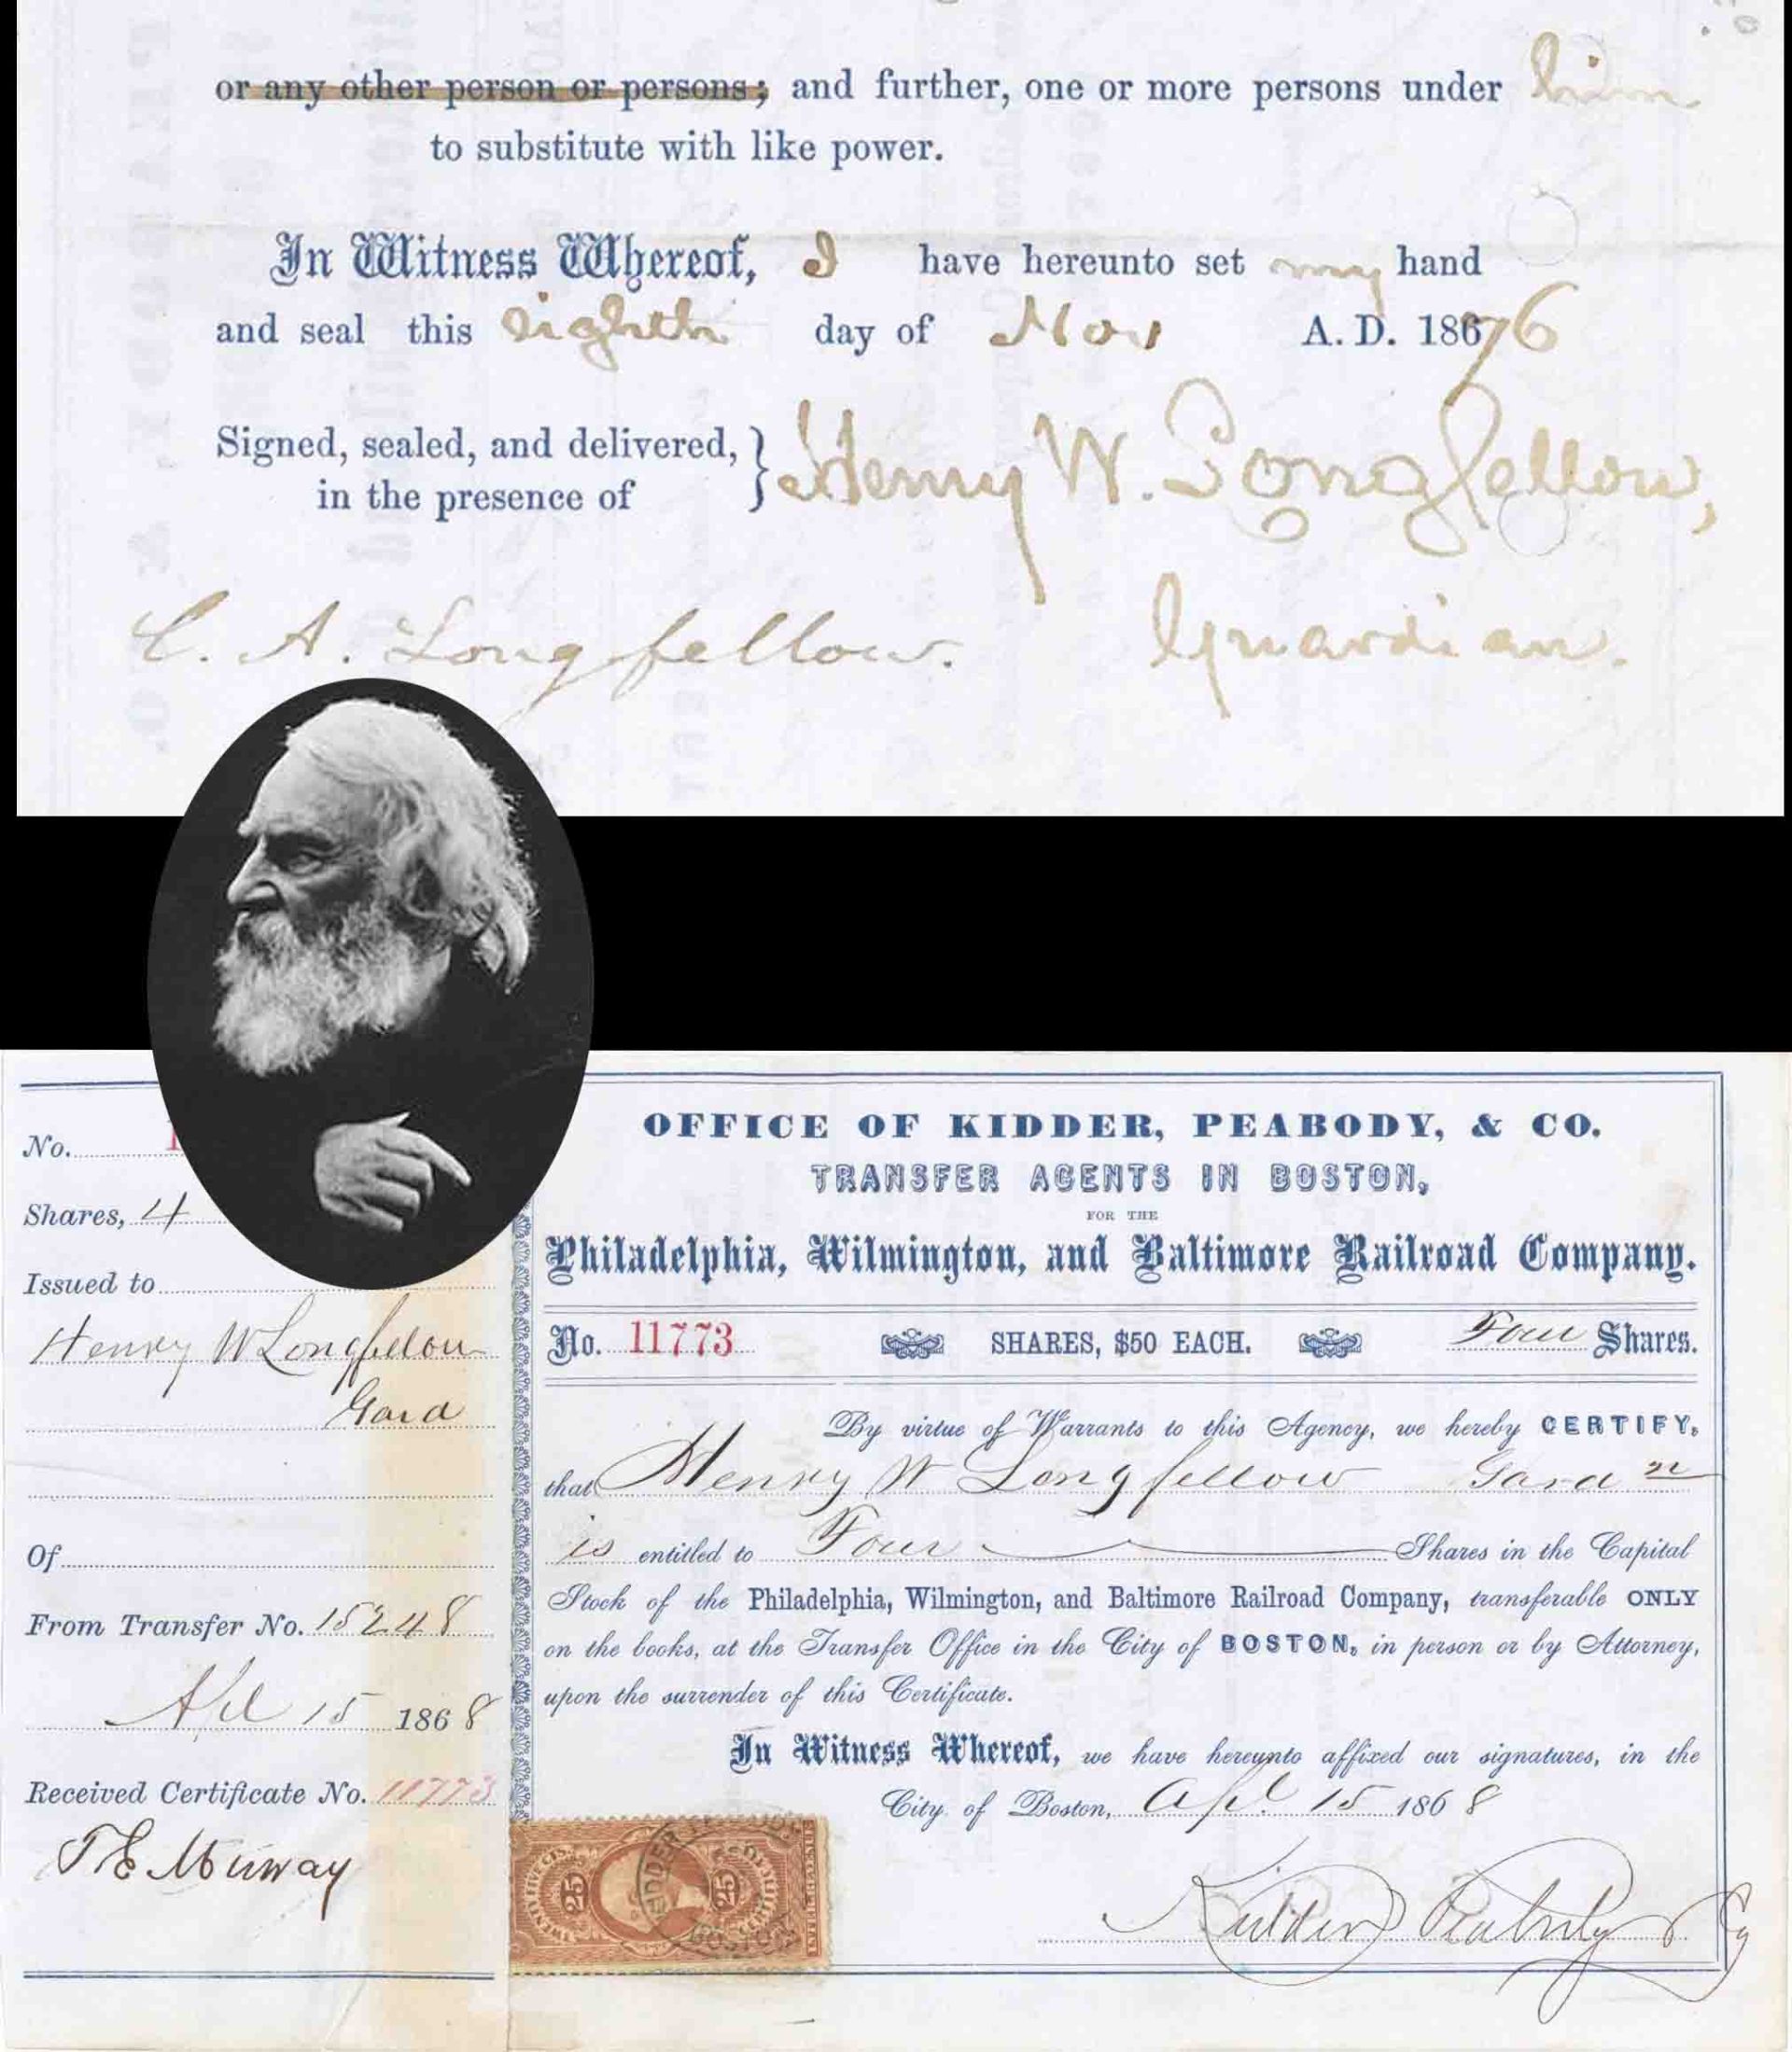 or any other person or persons; and further, one or more persons under him
to substitute with like power.
In Witness Whereof, I have hereunto set my hand
and seal this eighth day of Nov A. D. 18676
Signed, sealed, and delivered,
in the presence of
Henry W. Longfellow,
Guardian.
C. A. Longfellow.
No.
Shares, 4
Issued to
Henry W Longfellow
Gard
Of
From Transfer No. 15248
Apl 15 1868
Received Certificate No. 11773
OFFICE OF KIDDER, PEABODY, & CO.
TRANSFER AGENTS IN BOSTON,
FOR THE
Philadelphia, Wilmington, and Baltimore Railroad Company.
No. 11773 SHARES, $50 EACH. Four Shares.
By virtue of Warrants to this Agency, we hereby CERTIFY,
that Henry W Longfellow Gard n
is entitled to Four Shares in the Capital
Stock of the Philadelphia, Wilmington, and Baltimore Railroad Company, transferable ONLY
on the books, at the Transfer Office in the City of BOSTON, in person or by Attorney,
upon the surrender of this Certificate.
In Witness Whereof, we have hereunto affixed our signatures, in the
City of Boston, Apl 15 1868
Kidder Peabody & Co
25 25
KIDDER
BOSTON